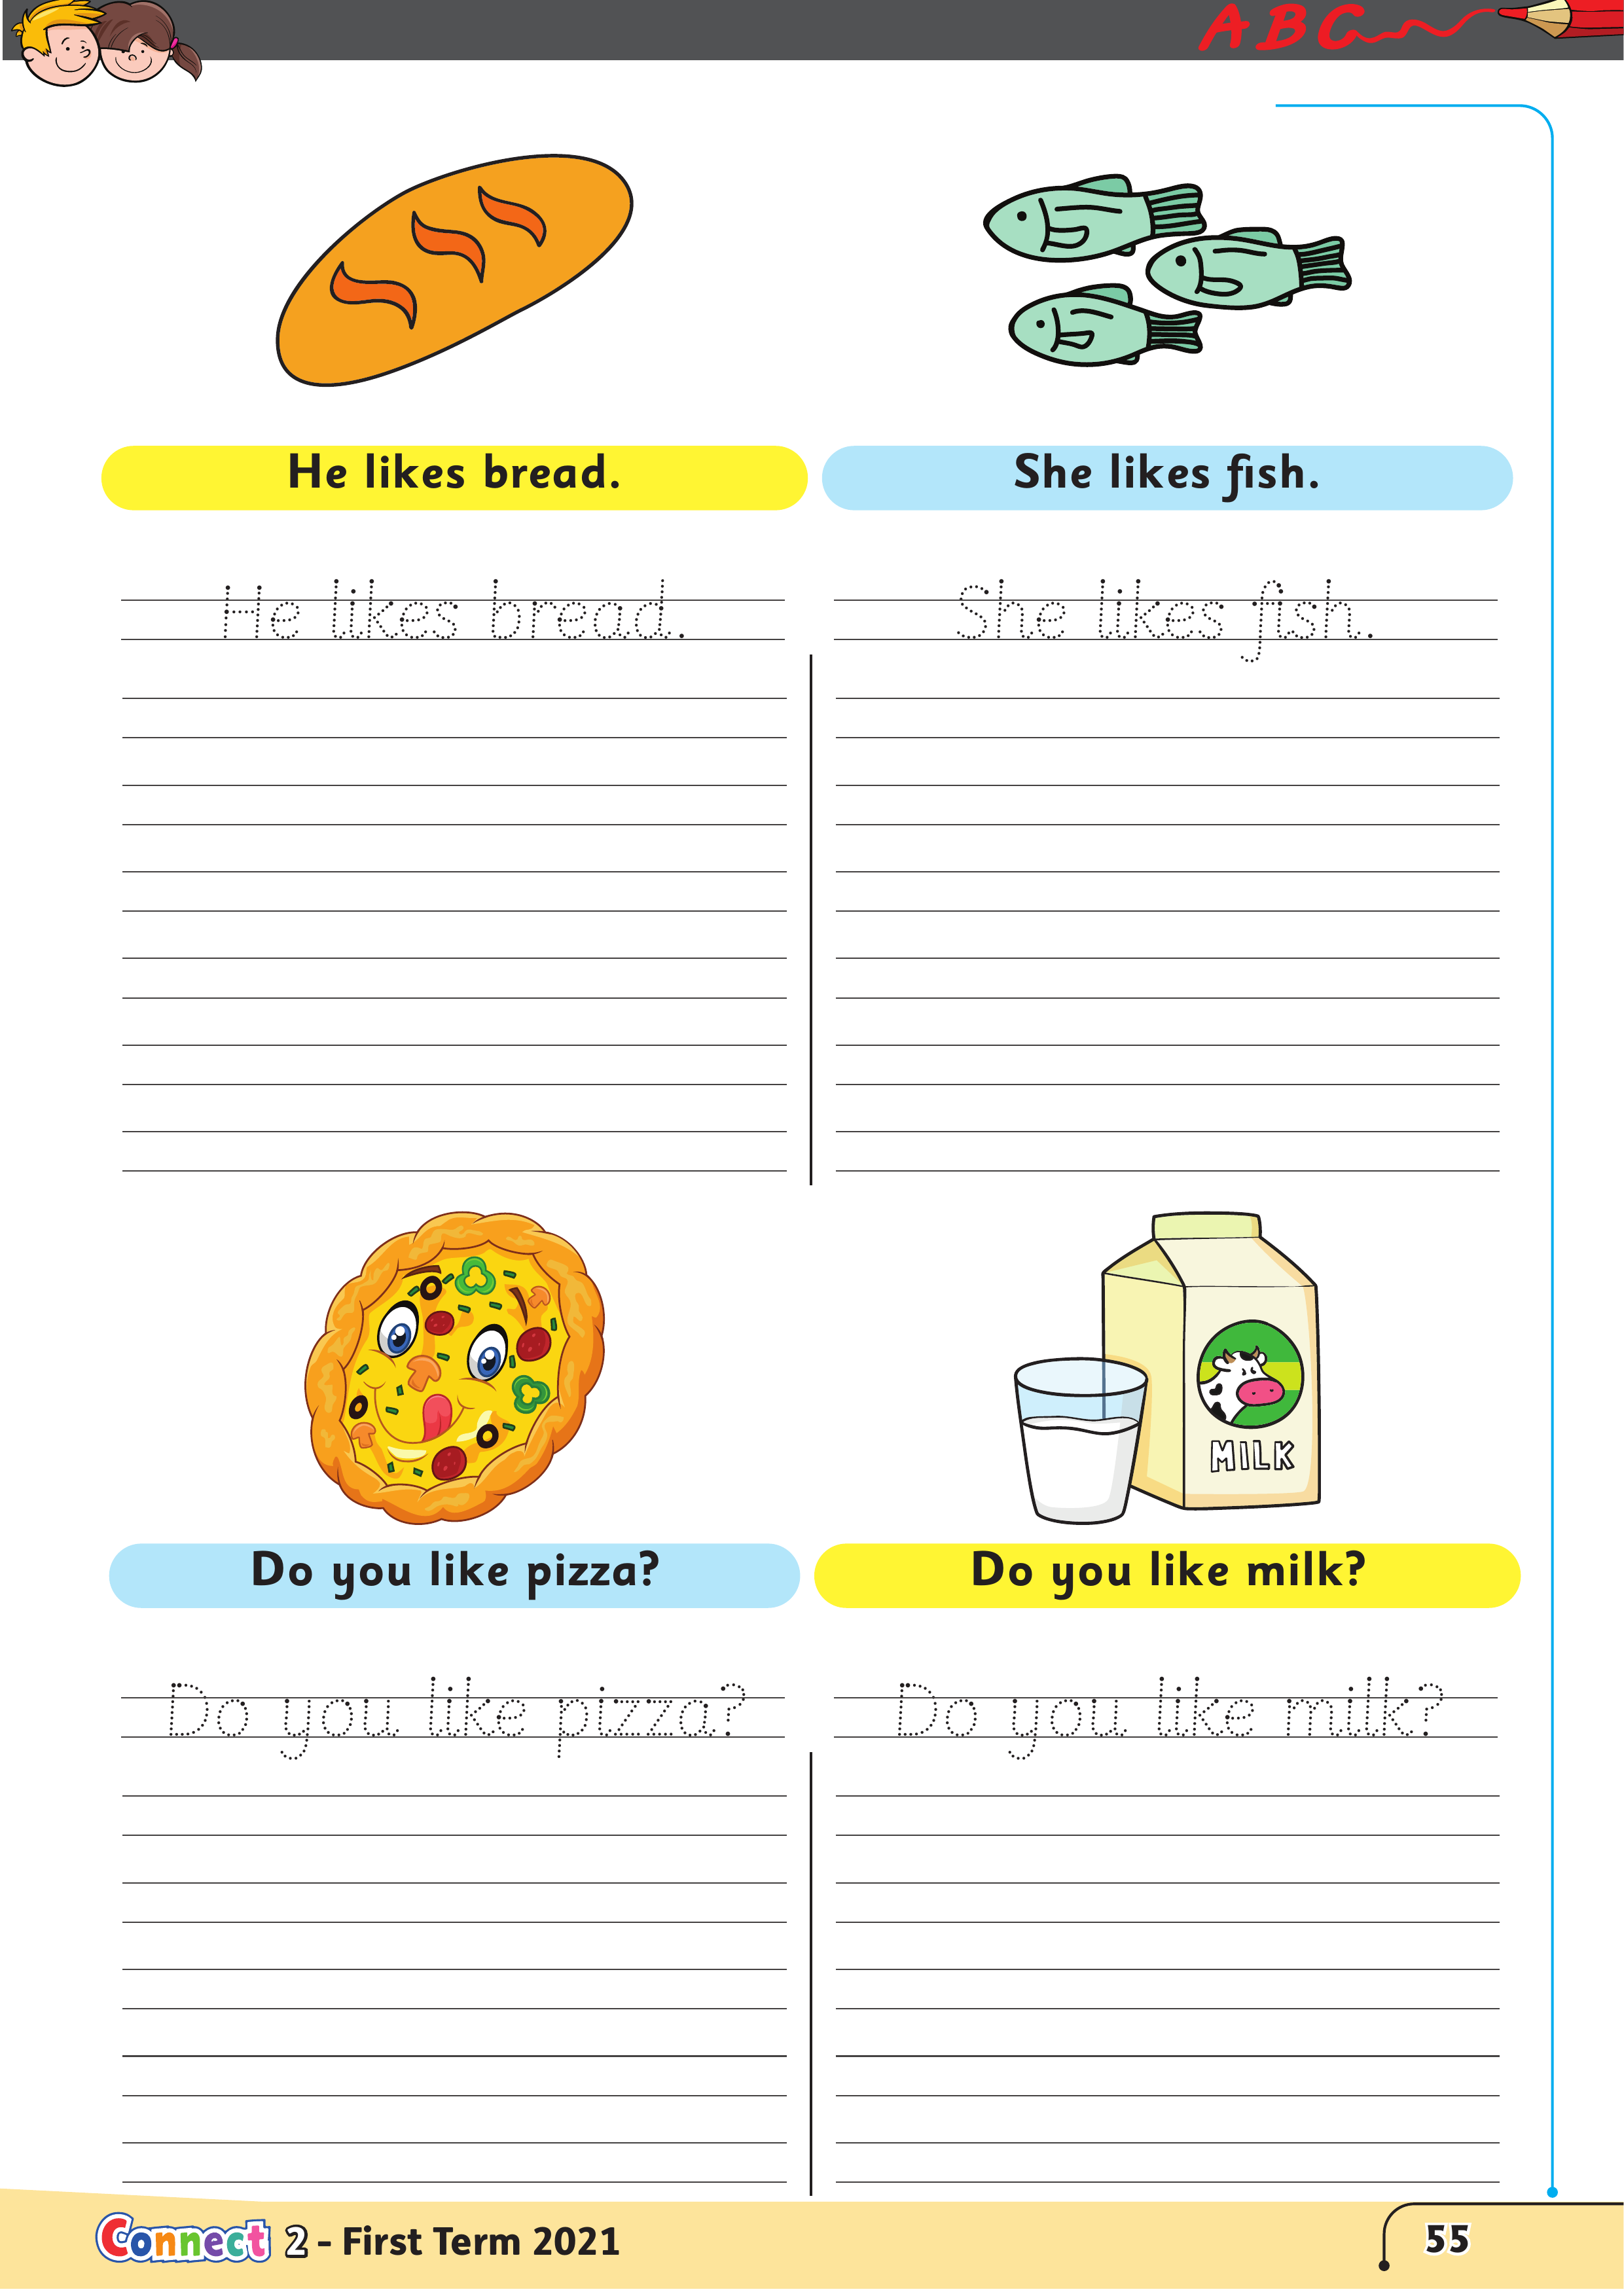 ABC
He likes bread.
She likes fish.
He likes bread.
She likes fish.
MILK
Do you like pizza?
Do you like milk?
Do you like pizza?
Do you like milk?
Connect 2 - First Term 2021
55